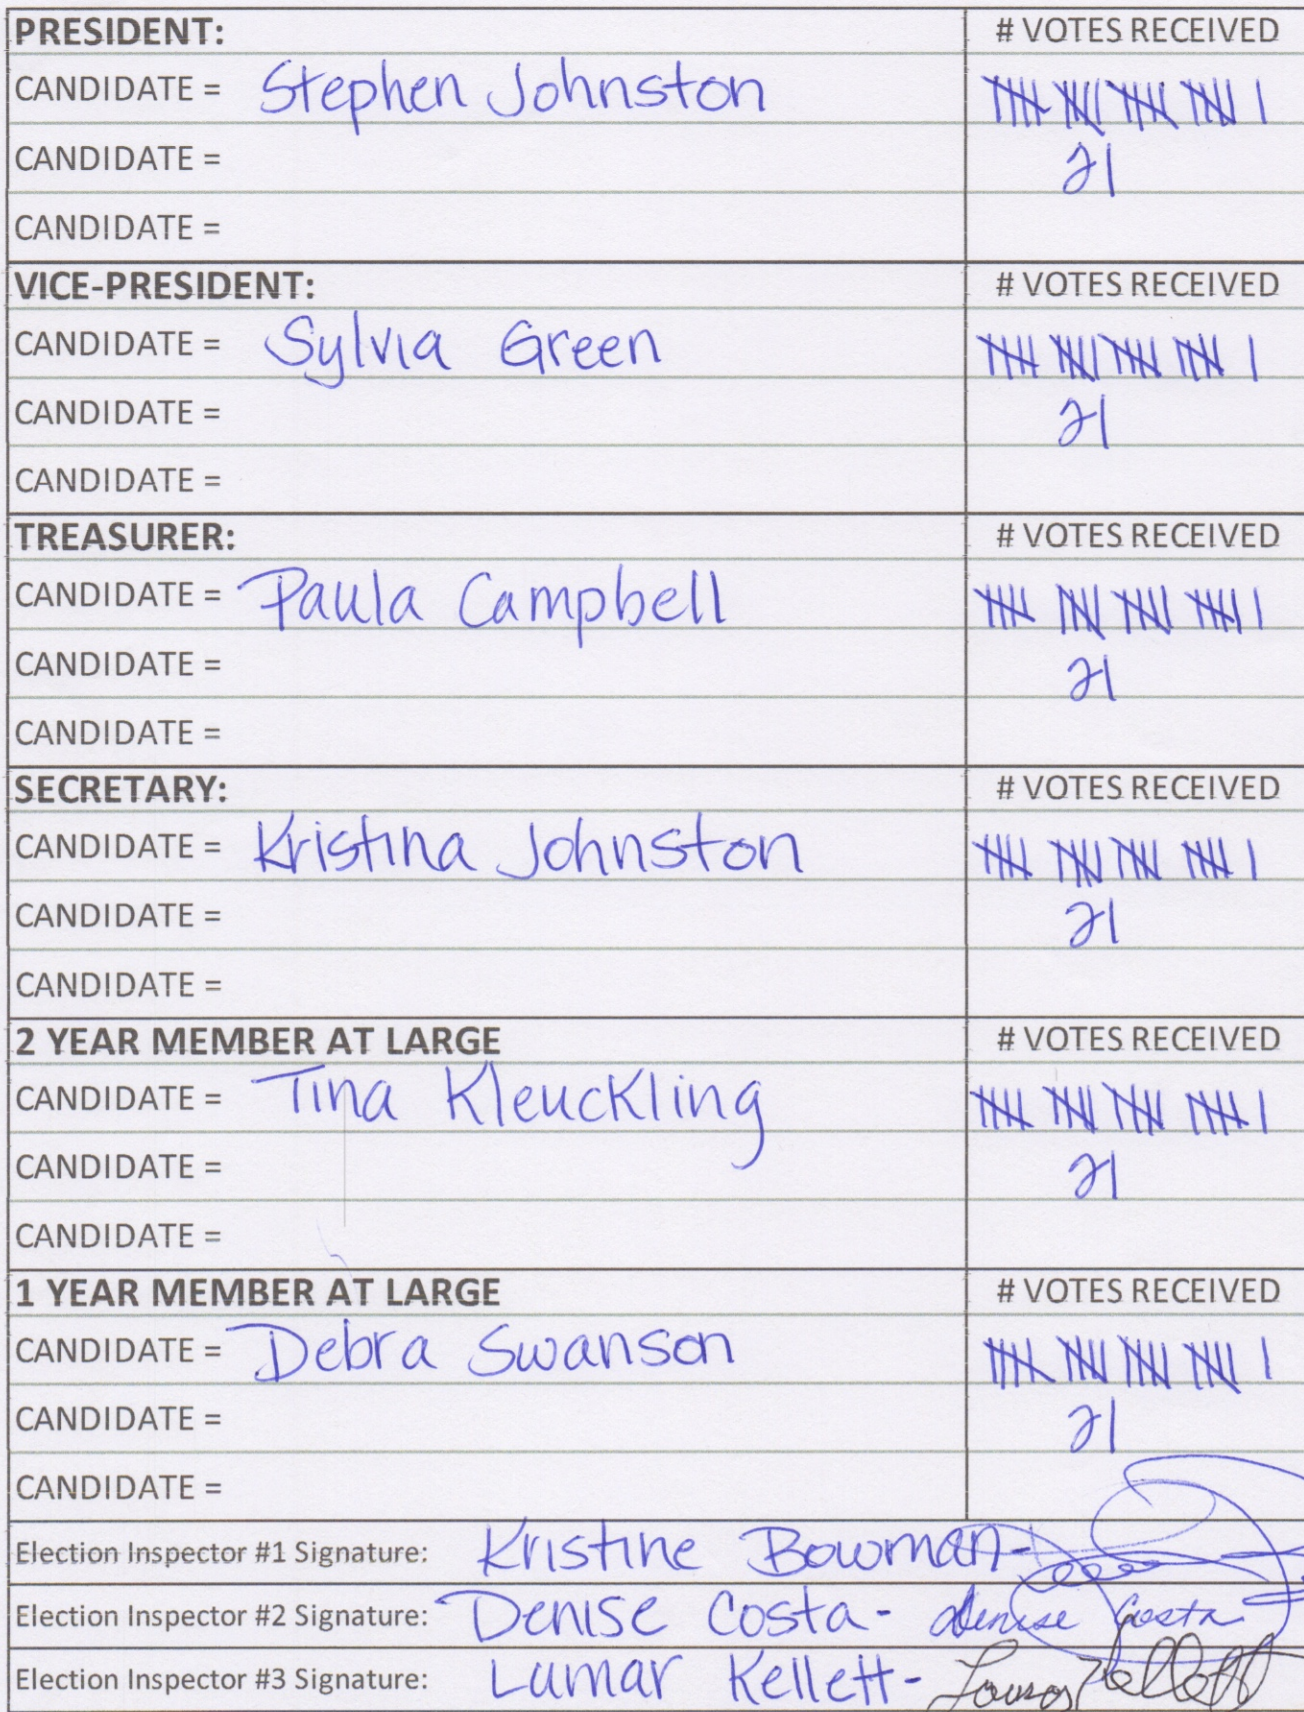 PRESIDENT: # VOTES RECEIVED
CANDIDATE = Stephen Johnston
CANDIDATE = 21
CANDIDATE =
VICE-PRESIDENT: # VOTES RECEIVED
CANDIDATE = Sylvia Green
CANDIDATE = 21
CANDIDATE =
TREASURER: # VOTES RECEIVED
CANDIDATE = Paula Campbell
CANDIDATE = 21
CANDIDATE =
SECRETARY: # VOTES RECEIVED
CANDIDATE = Kristina Johnston
CANDIDATE = 21
CANDIDATE =
2 YEAR MEMBER AT LARGE # VOTES RECEIVED
CANDIDATE = Tina Kleuckling
CANDIDATE = 21
CANDIDATE =
1 YEAR MEMBER AT LARGE # VOTES RECEIVED
CANDIDATE = Debra Swanson
CANDIDATE = 21
CANDIDATE =
Election Inspector #1 Signature: Kristine Bowman-
Election Inspector #2 Signature: Denise Costa- Denise Costa
Election Inspector #3 Signature: Lumar Kellett- Kellett